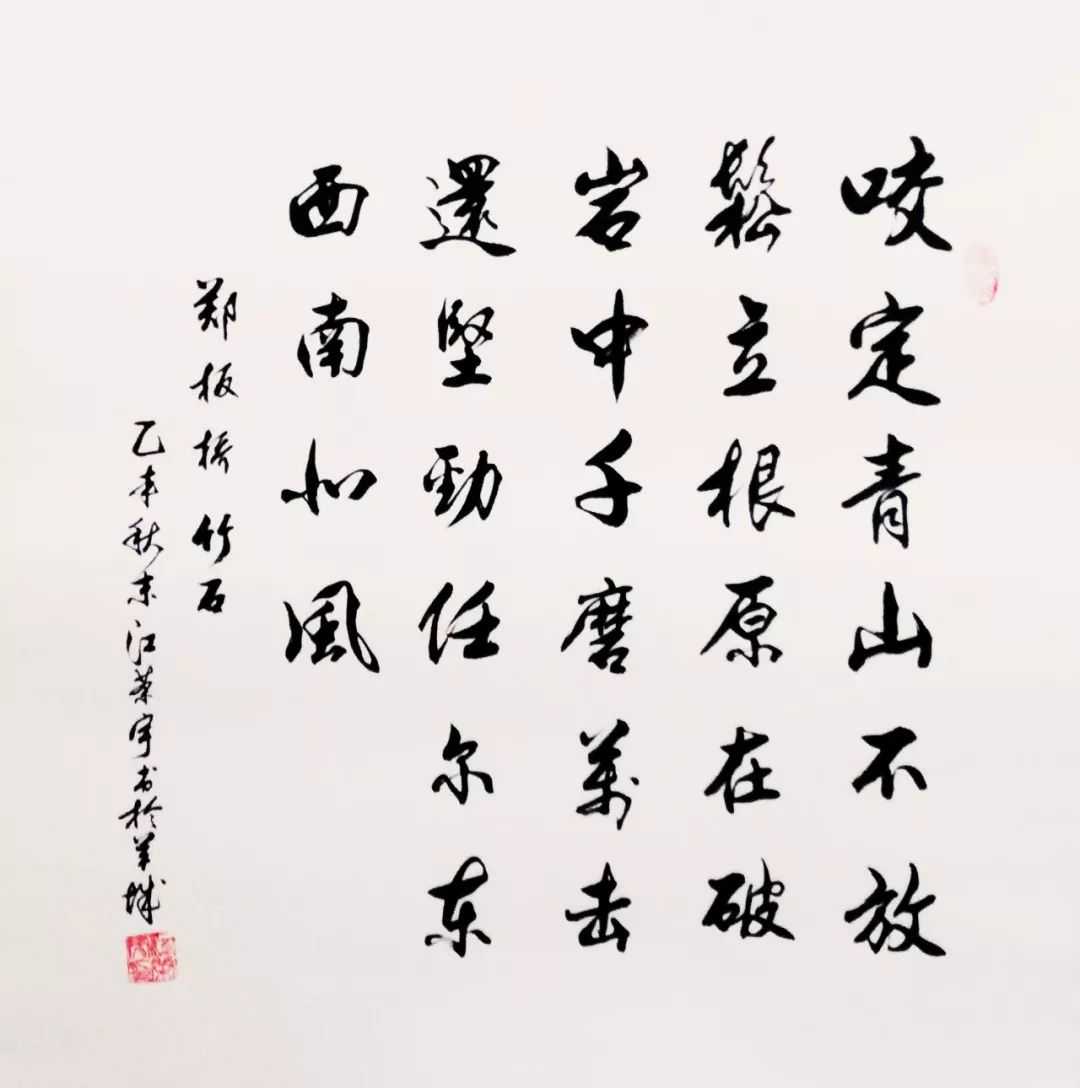 咬定青山不放
鬆立根原在破
岩中千磨萬击
還堅勁任尔东
西南北風
郑板桥竹石
乙未秋末江荣宇书於羊城